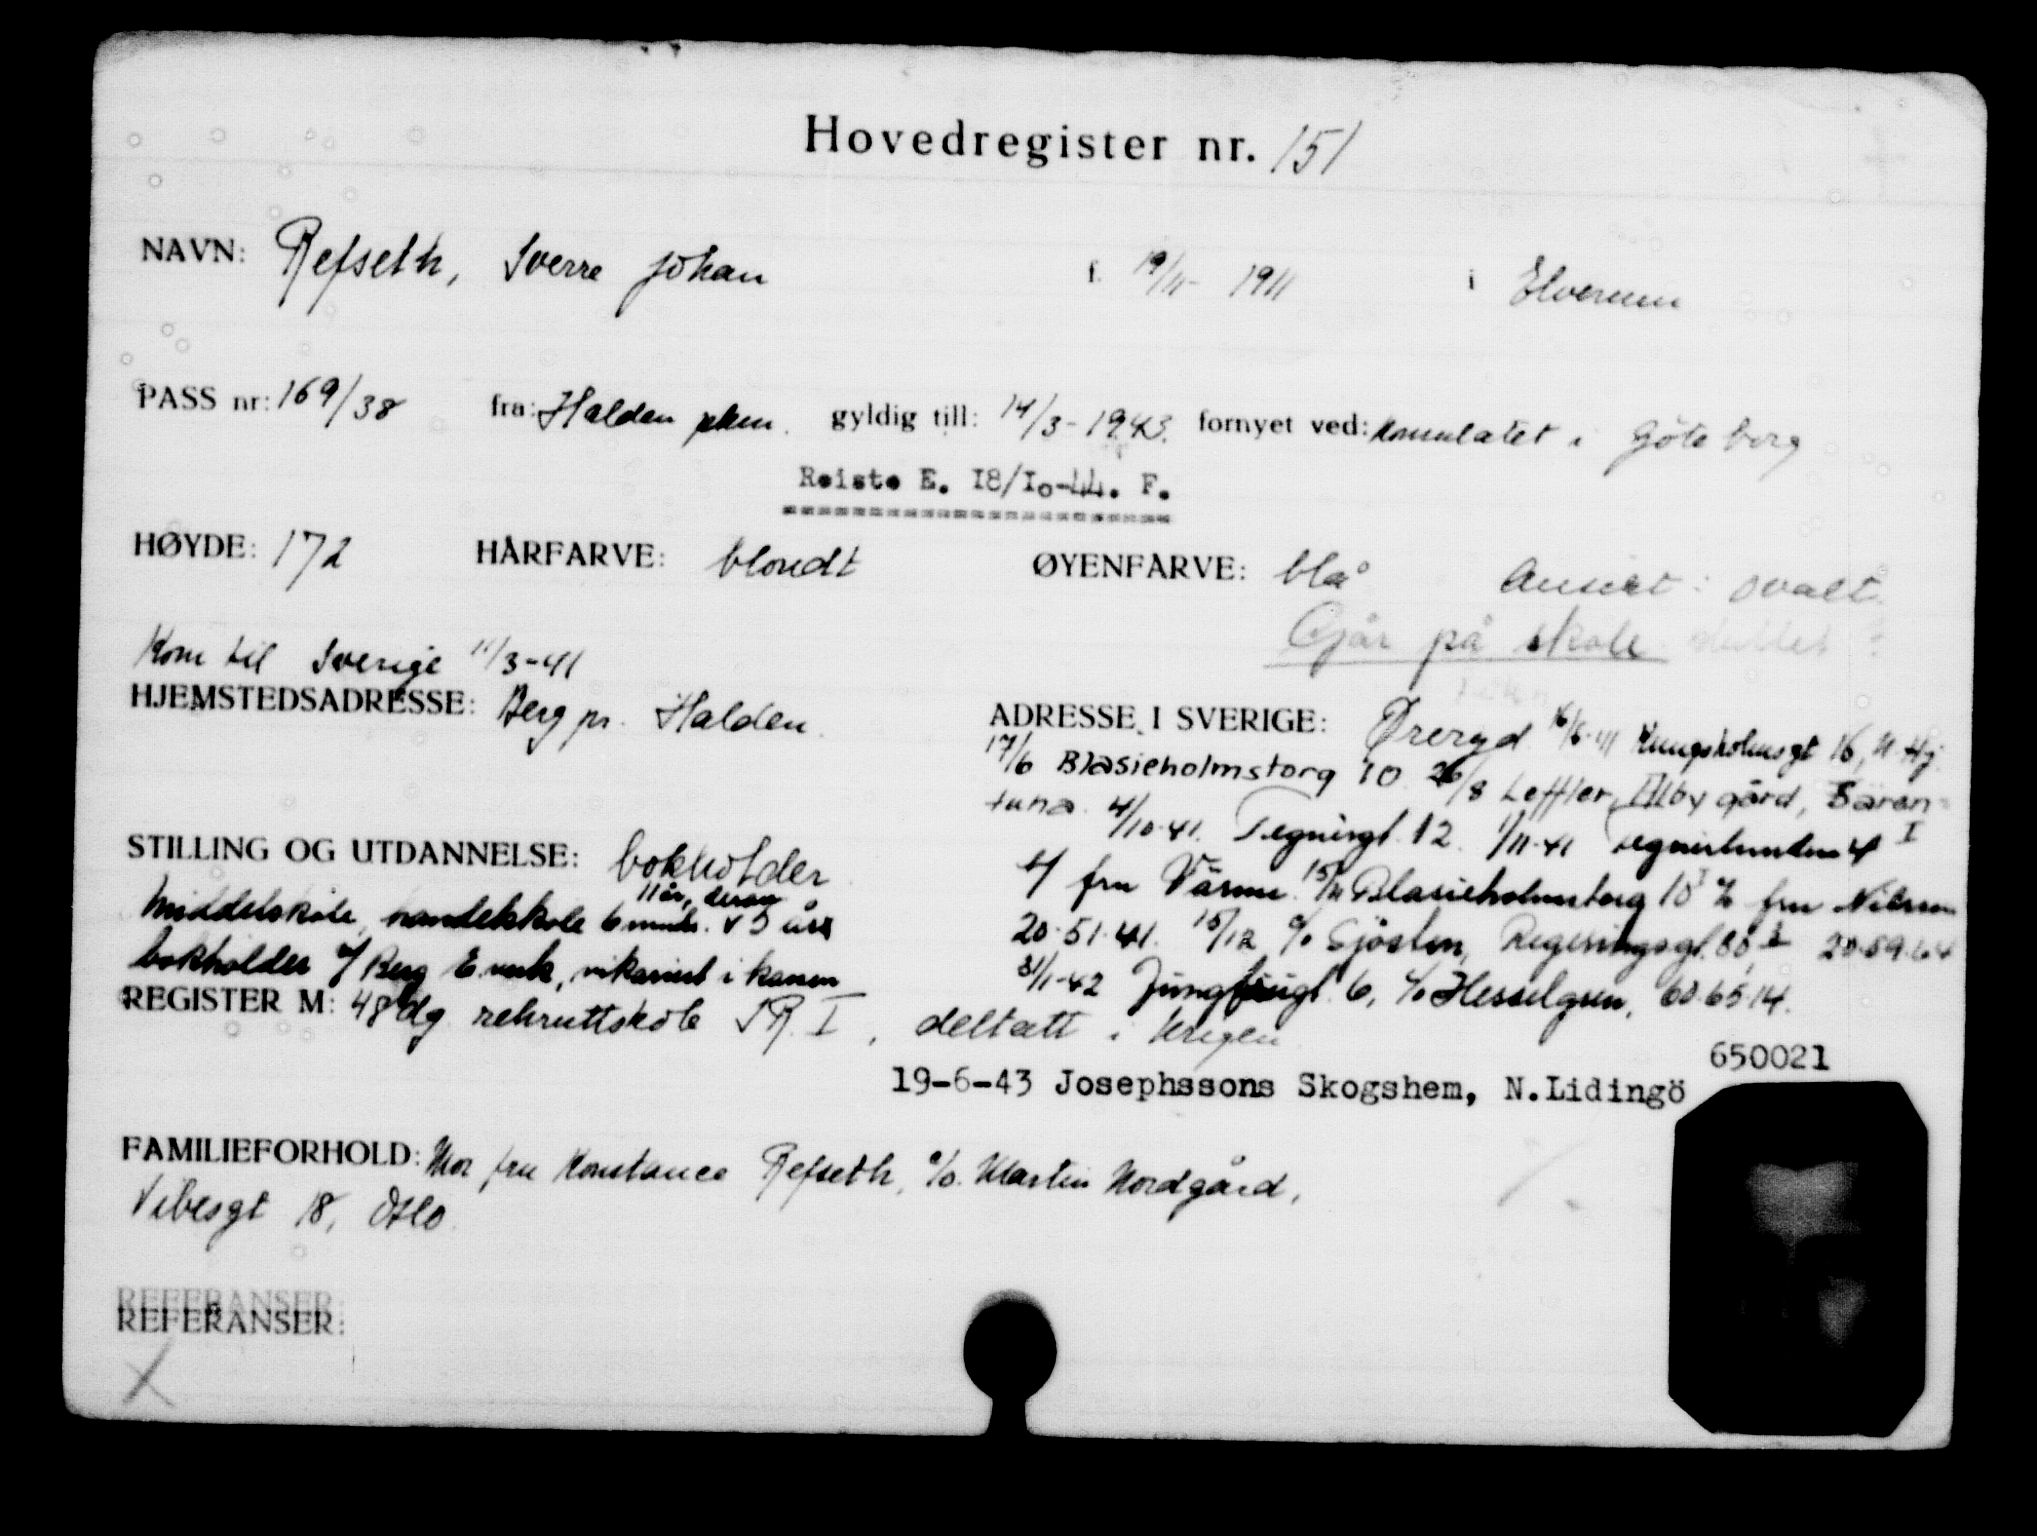 Hovedregister nr. 151
NAVN: Refseth, Sverre Johan f. 19/11- 1911 i Elverum
PASS nr: 169/38 fra: Halden pkm. gyldig till: 14/3-1943. fornyet ved: Konsulatet i Göteborg
Reiste E. I8/Io-44. F.
HØYDE: 172 HÅRFARVE: blondt ØYENFARVE: blå Ansikt: ovalt
Går på skole sluttet ?
Kom til Sverige 11/3-41
HJEMSTEDSADRESSE: Berg pr. Halden.
ADRESSE I SVERIGE: Øreryd 16/6-41 Kungsholmsgt 16, n. Hj.
17/6 Blasieholmstorg 10 26/8 Leffler, Ålby gård, Sören-
tuna. 4/10-41. Tegnérgt. 12. 1/11-41 Tegnérlunden 4 I
c/o fru 15/11 Blasieholmstorg 10 I c/o fru Nilsson
20.51.41. 15/12 c/o Sjösten, Regeringsgt. 88, 20.59.64
31/1-42 Jungfrugt. 6, c/o Hesselgren, 60.65.14.
STILLING OG UTDANNELSE: bokholder
11 år, derav
middelskole, handelskole 6 mndr. v 5 års
bokholder v/ Berg E.verk, vikariert i kassen
REGISTER M: 48 dg rekruttskole I.R. I, deltatt i krigen
650021
19-6-43 Josephssons Skogshem, N.Lidingö
FAMILIEFORHOLD: Mor fru Konstance Refseth, c/o. Martin Nordgård,
Vibesgt 18, Oslo.
REFERANSER:
REFERANSER:
X